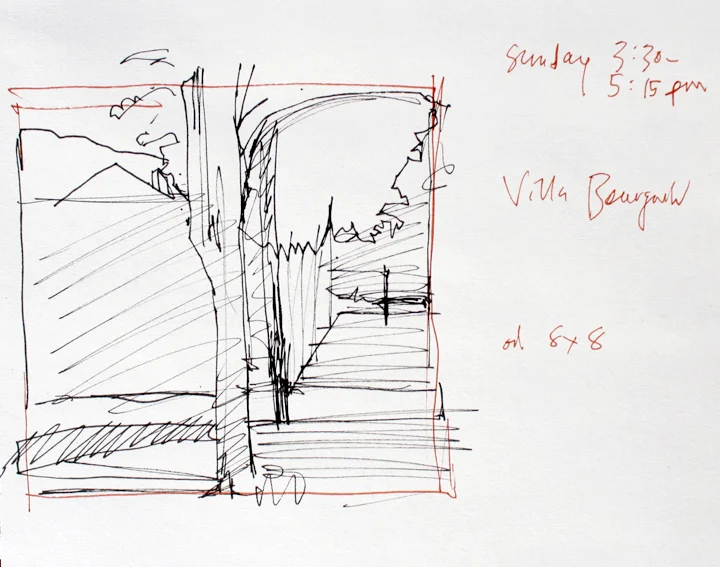 Sunday 3:30-
5:15 pm
Villa
8x8